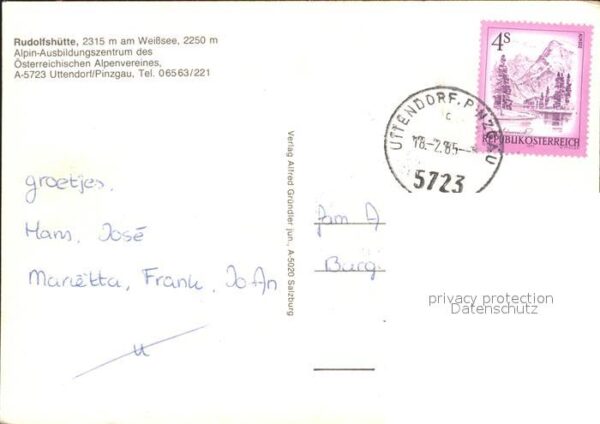 Rudolfshütte, 2315 m am Weißsee, 2250 m
Alpin-Ausbildungszentrum des
Österreichischen Alpenvereines,
A-5723 Uttendorf/Pinzgau, Tel. 06563/221
4S
REPUBLIK ÖSTERREICH
UTTENDORF, PINZGAU
c
18.-2.85-
5723
Verlag Alfred Gründler jun., A-5020 Salzburg
groetjes,
Hans, José
Mariëtta, Frank, JoAn
Fam A
Burg.
privacy protection
Datenschutz